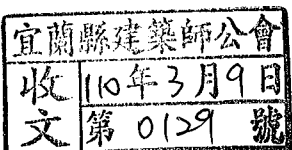 宜蘭縣建築師公會
收文
110年3月9日
第 0129 號